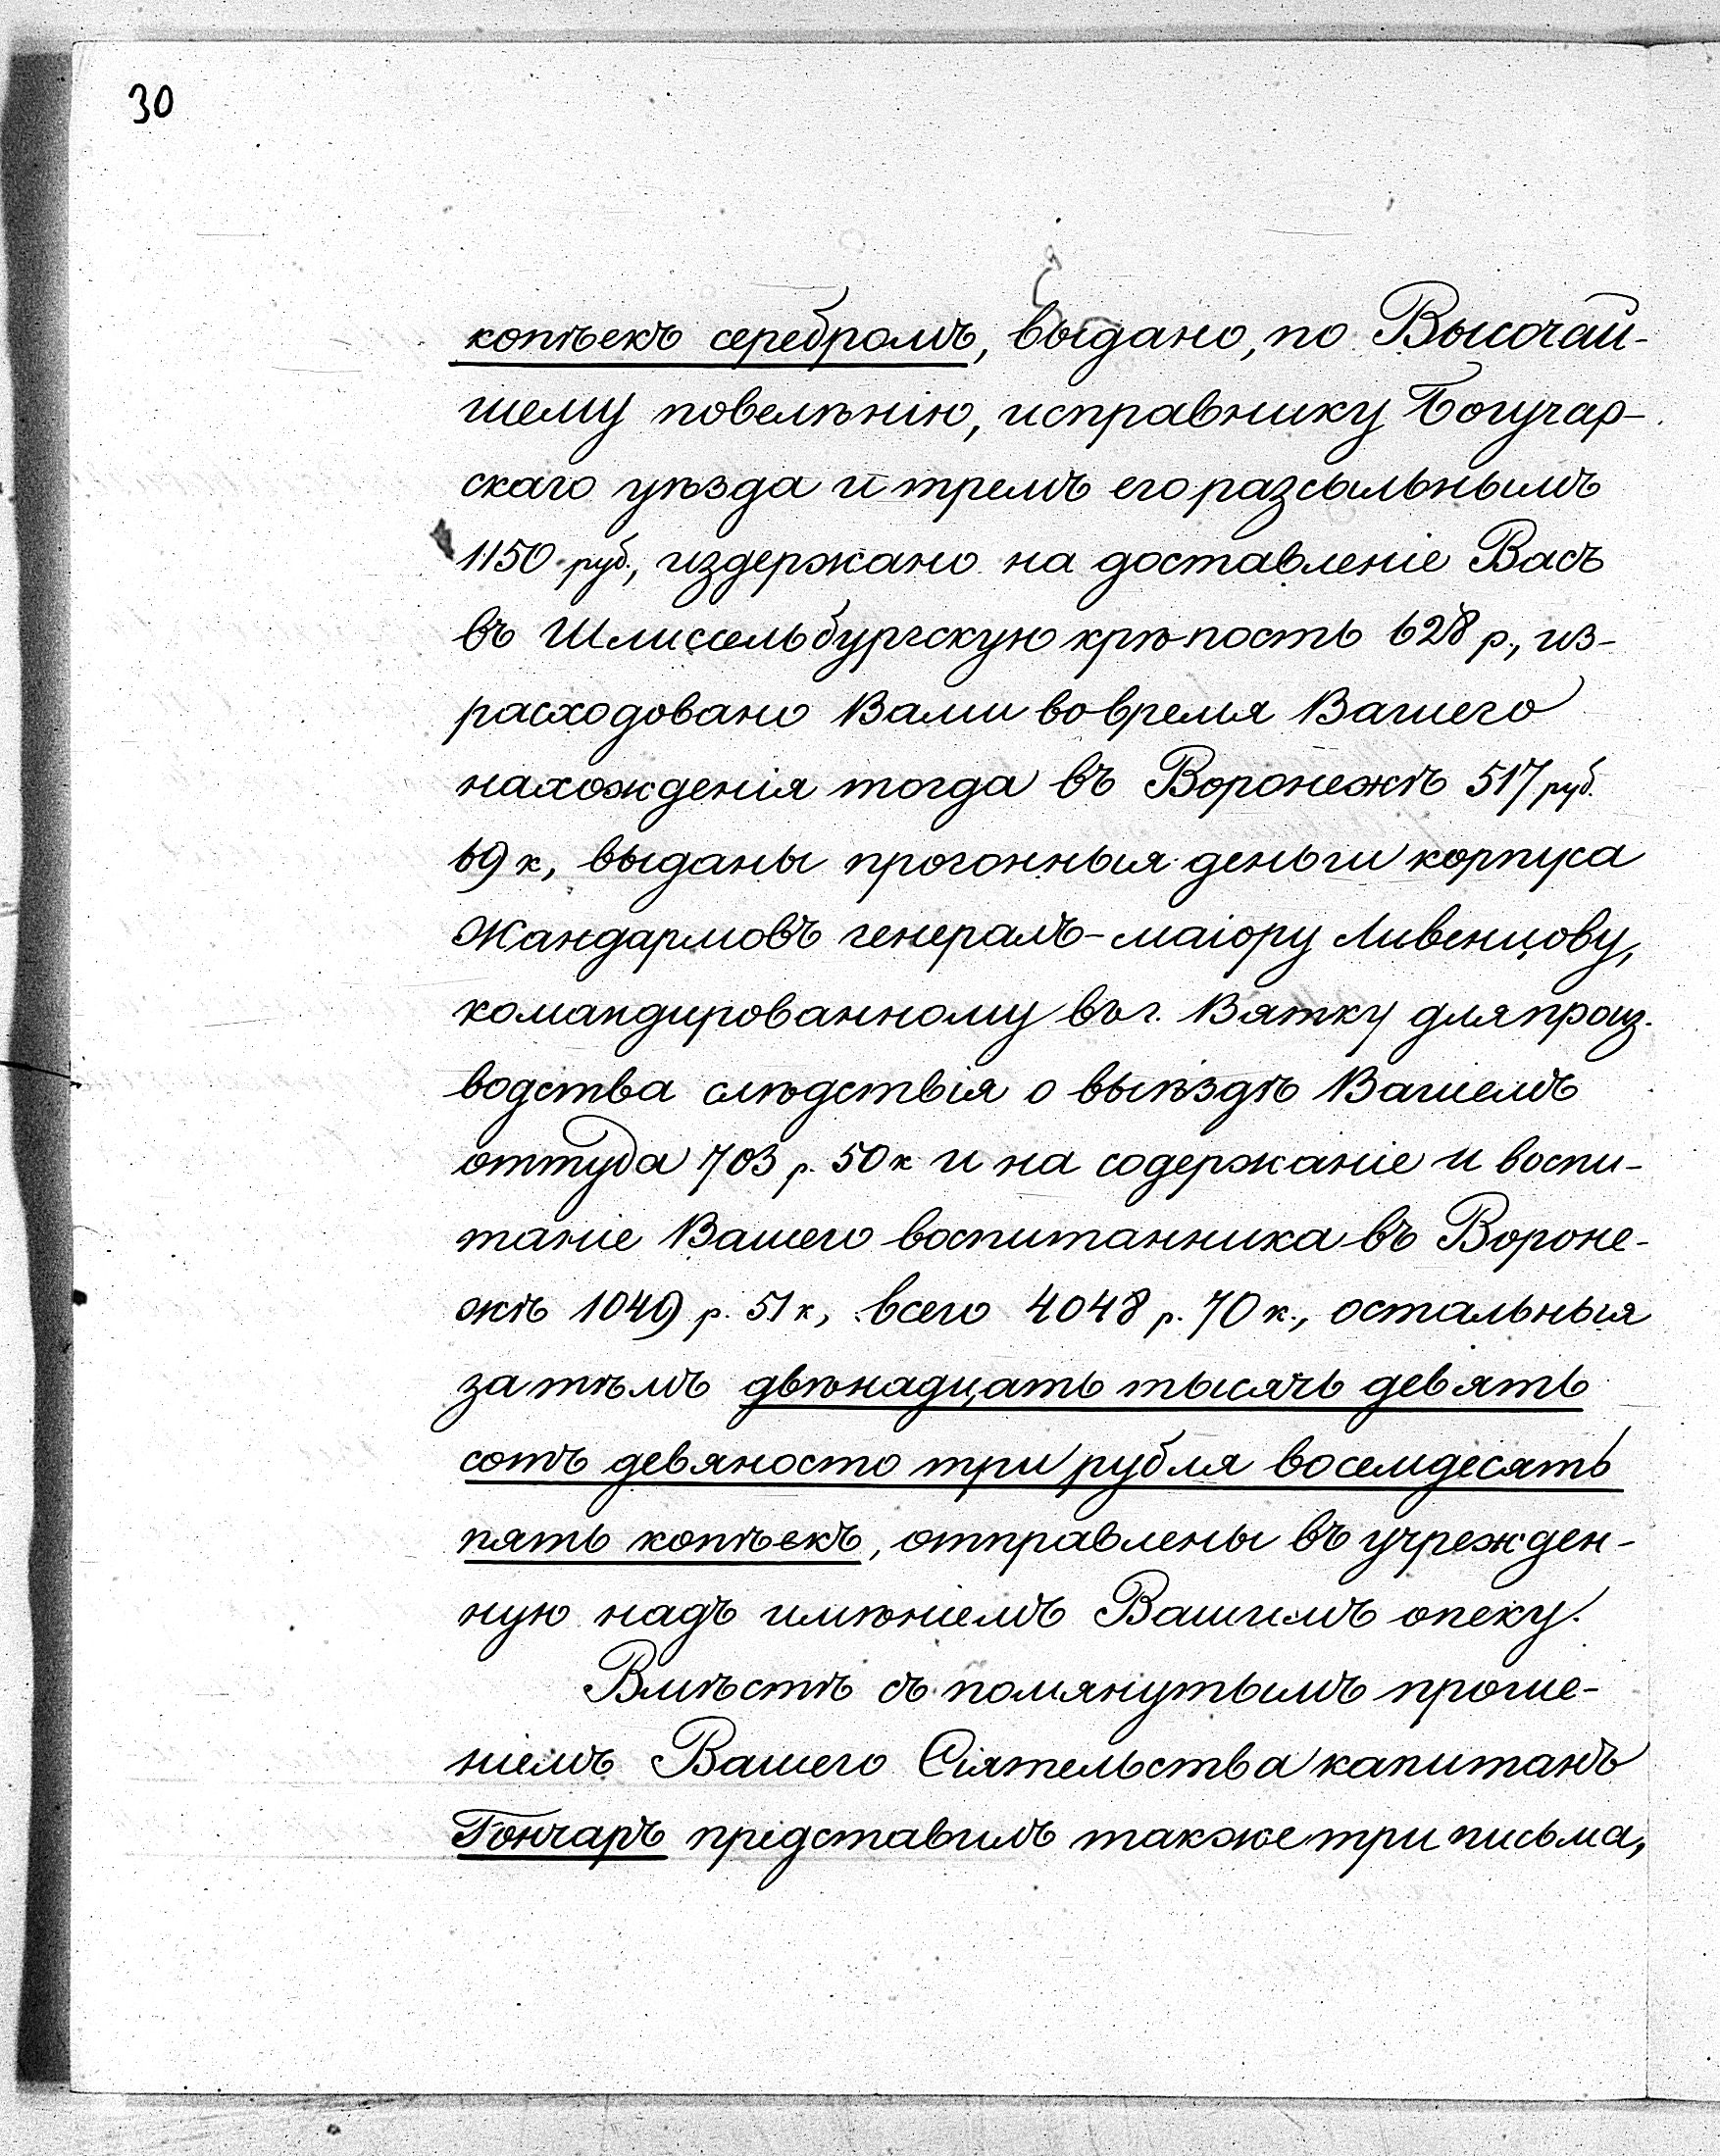 30
копѣекъ серебромъ, выдано, по Высочай-
шему повелѣнію, исправнику Богучар-
скаго уѣзда и тремъ его разсыльнымъ
1150 руб., издержано на доставленіе Васъ
въ Шлиссельбургскую крѣпость 628 р., из-
расходовано Вами во время Вашего
нахожденія тогда въ Воронежѣ 517 руб.
69 к, выданы прогонныя деньги корпуса
Жандармовъ генералъ-маіору Ливенцову,
командированному въ г. Вятку для произ-
водства слѣдствія о выѣздѣ Вашемъ
оттуда 703 р. 50 к и на содержаніе и воспи-
таніе Вашего воспитанника въ Вороне-
жѣ 1049 р. 51 к, всего 4048 р. 70 к., остальныя
затѣмъ двѣнадцать тысячъ девять
сотъ девяносто три рубля восемдесять
пять копѣекъ, отправлены въ учрежден-
ную надъ имѣніемъ Вашимъ опеку.
Вмѣстѣ съ помянутымъ проше-
ніемъ Вашего Сіятельства капитанъ
Гончаръ представилъ также три письма,